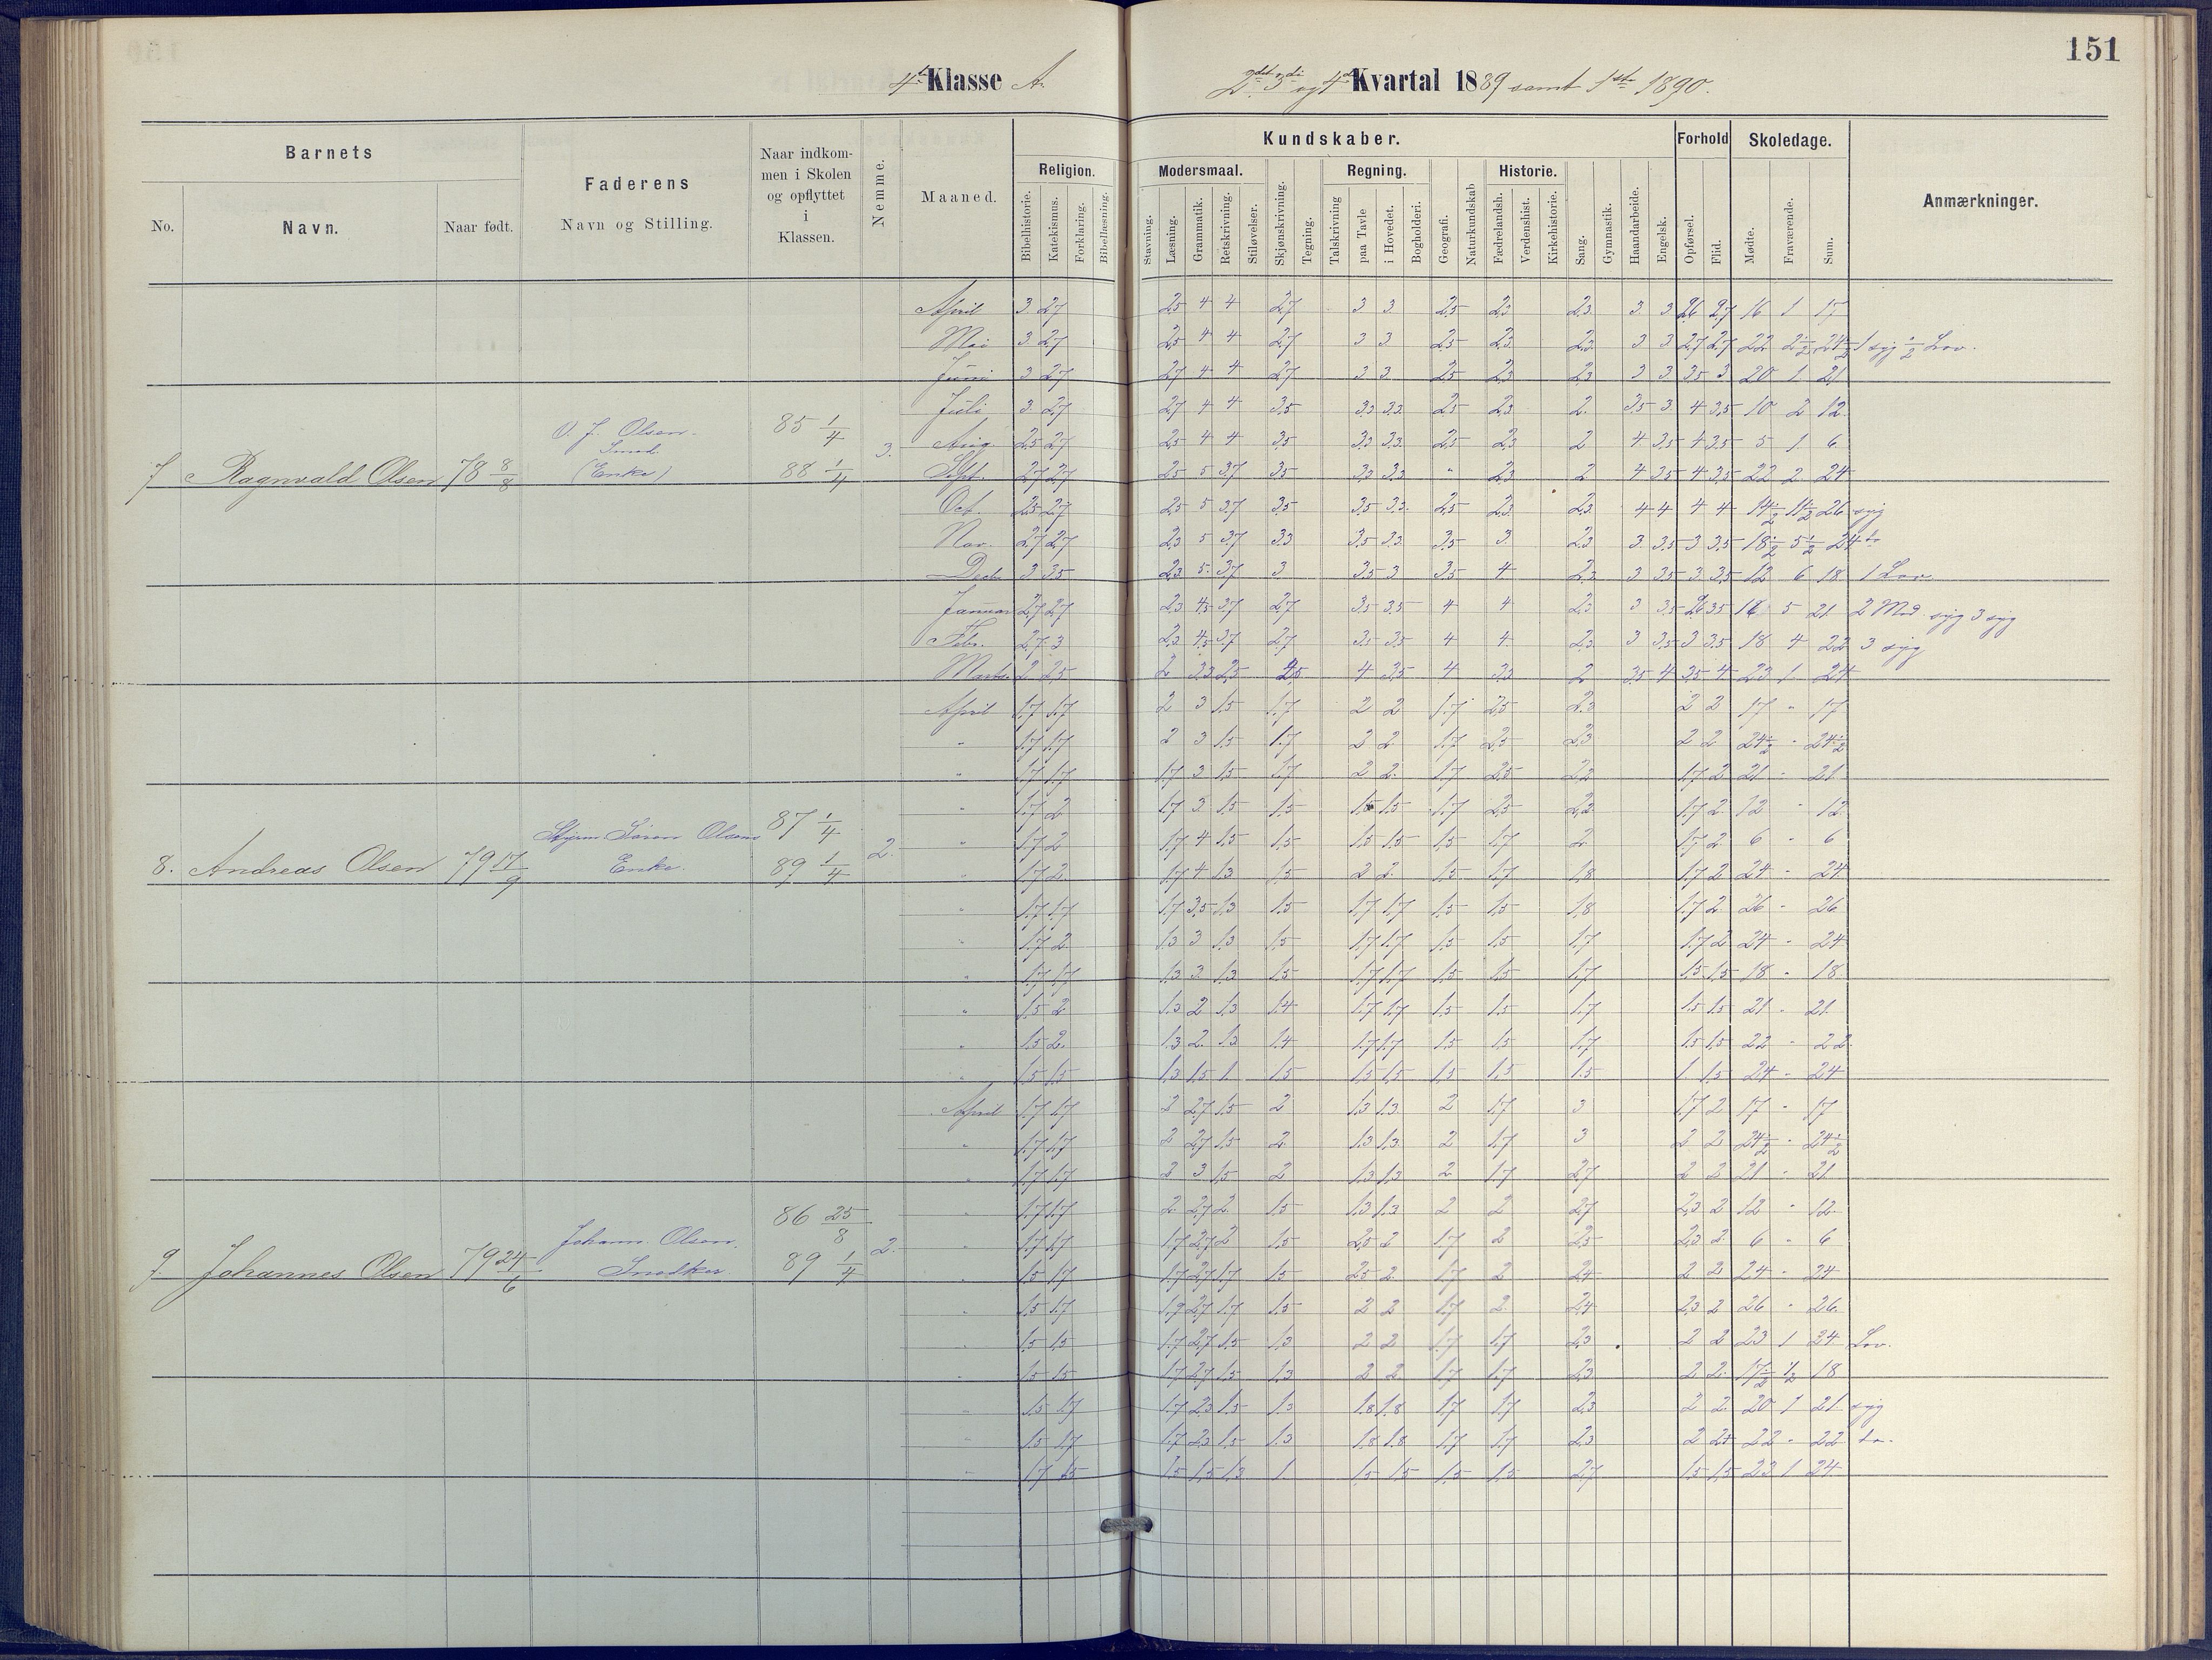 151
4de Klasse A.
2det 3die og 4de Kvartal 1889 samt 1ste 1890.
Barnets
No.
Navn.
Naar født.
Faderens
Navn og Stilling.
Naar indkom-
men i Skolen
og opflyttet
i
Klassen.
Nemme.
Maaned.
Kundskaber.
Religion.
Bibelhistorie.
Katekismus.
Forklaring.
Bibellæsning.
Modersmaal.
Stavning.
Læsning.
Grammatik.
Retskrivning.
Stiløvelser.
Skjønskrivning.
Tegning.
Regning.
Talskrivning
paa Tavle
i Hovedet.
Bogholderi.
Geografi.
Naturkundskab
Historie.
Fædrelandsh.
Verdenshist.
Kirkehistorie.
Sang.
Gymnastik.
Haandarbeide.
Engelsk.
Forhold
Opførsel.
Flid.
Skoledage.
Mødte.
Fraværende.
Sum.
Anmærkninger.
7 Ragnvald Olsen 78 8/8 O. J. Olsen. Smed. (Enke) 85 1/4 88 1/4 3.
April 3 2,7 2,5 4 4 2,7 3 3 2,5 2,3 2,3 3 3 2,6 2,7 16 1 17
Mai 3 2,7 2,5 4 4 2,7 3 3 2,5 2,3 2,3 3 3 2,7 2,7 22 2 1/2 24 1/2 1 syg 1/2 Lov.
Juni 3 2,7 2,7 4 4 2,7 3 3 2,5 2,3 2,3 3 3 3,5 3 20 1 21
Juli 3 2,7 2,7 4 4 3,5 3,3 3,3 2,5 2,3 2 3,5 3 4 3,5 10 2 12
Aug. 2,5 2,7 2,5 4 4 3,5 3,3 3,3 2,5 2,3 2 4 3,5 4 3,5 5 1 6
Sept. 2,7 2,7 2,5 5 3,7 3,5 3,3 3,3 " 2,3 2 4 3,5 4 3,5 22 2 24
Oct. 2,5 2,7 2,5 5 3,7 3,5 3,5 3,3 2,5 2,3 2,3 4 4 4 4 14 1/2 11 1/2 26 syg
Nov. 2,7 2,7 2,3 5 3,7 3,3 3,5 3,3 3,5 3 2,3 3 3,5 3 3,5 18 1/2 5 1/2 24 do
Decb. 3 3,5 2,3 5 3,7 3 3,5 3 3,5 4 2,3 3 3,5 3 3,5 12 6 18 1 Lov
Januar 2,7 2,7 2,3 4,5 3,7 2,7 3,5 3,5 4 4 2,3 3 3,5 2,6 3,5 16 5 21 2 Mod. syg 3 syg
Febr. 2,7 3 2,3 4,5 3,7 2,7 3,5 3,5 4 4 2,3 3 3,5 3 3,5 18 4 22 3 syg
Marts 2 2,5 2 3,3 2,5 2,5 4 3,5 4 3,3 2 3,5 4 3,5 4 23 1 24
8. Andreas Olsen 79 17/9 Styrm. Søren Olsens Enke. 87 1/4 89 1/4 2.
April 1,7 1,7 2 3 1,5 1,7 2 2 1,7 2,5 2,3 2 2 17 " 17
" 1,7 1,7 2 3 1,5 1,7 2 2 1,7 2,5 2,3 2 2 24 1/2 " 24 1/2
" 1,7 1,7 1,7 3 1,5 1,7 2 2 1,7 2,5 2,2 1,7 2 21 " 21
" 1,7 2 1,7 3 1,5 1,5 1,5 1,5 1,7 2,5 2,2 1,7 2 12 " 12
" 1,7 2 1,7 4 1,5 1,5 1,5 1,5 1,5 1,7 2 1,7 2 6 " 6
" 1,7 2 1,7 4 1,3 1,5 2 2 1,5 1,7 1,8 1,7 2 24 " 24
" 1,7 1,7 1,7 3,5 1,3 1,5 1,7 1,7 1,5 1,5 1,8 1,7 2 26 " 26
" 1,7 2 1,3 3 1,3 1,5 1,7 1,7 1,5 1,5 1,7 1,7 2 24 " 24
" 1,7 1,7 1,3 3 1,3 1,5 1,7 1,7 1,5 1,5 1,7 1,5 1,5 18 " 18
" 1,5 2 1,3 2 1,3 1,4 1,7 1,7 1,5 1,5 1,7 1,5 1,5 21 " 21
" 1,5 2 1,3 2 1,3 1,4 1,7 1,7 1,5 1,5 1,7 1,5 1,5 22 " 22
" 1,5 1,5 1,3 1,5 1 1,5 1,5 1,5 1,5 1,5 1,5 1 1,5 24 " 24
9. Johannes Olsen 79 24/6 Johann. Olsen. Snedker 86 25/8 89 1/4 2.
April 1,7 1,7 2 2,7 1,5 2 1,3 1,3 2 1,7 3 1,7 2 17 " 17
" 1,7 1,7 2 2,7 1,5 2 1,3 1,3 2 1,7 3 2 2 24 1/2 " 24 1/2
" 1,7 1,7 2 3 1,5 2 1,3 1,3 2 1,7 2,7 2 2 21 " 21
" 1,7 1,7 2 2,7 2 1,5 1,3 1,3 2 2 2,7 2,3 2 12 " 12
" 1,7 1,7 1,7 2,7 2 1,5 2,5 2 1,7 2 2,5 2,3 2 6 " 6
" 1,5 1,7 1,7 2,7 1,7 1,5 2,5 2 1,7 2 2,4 2 2 24 " 24
" 1,5 1,7 1,7 2,7 1,7 1,5 2 2 1,7 2 2,4 2,3 2 26 " 26
" 1,5 1,5 1,7 2,7 1,5 1,3 2 2 1,7 1,7 2,3 2 2 23 1 24 Lov.
" 1,5 1,5 1,7 2,7 1,5 1,3 2 2 1,7 1,7 2,3 2 2 17 1/2 1/2 18
" 1,5 1,7 1,7 2,3 1,5 1,3 1,8 1,8 1,7 1,7 2,3 2 2 20 1 21 syg
" 1,5 1,7 1,7 2,3 1,5 1,3 1,8 1,8 1,7 1,7 2,3 2 2,4 22 " 22 do.
" 1,7 1,5 1,5 1,5 1,3 1 1,5 1,5 1,5 1,5 2,7 1,5 1,5 23 1 24